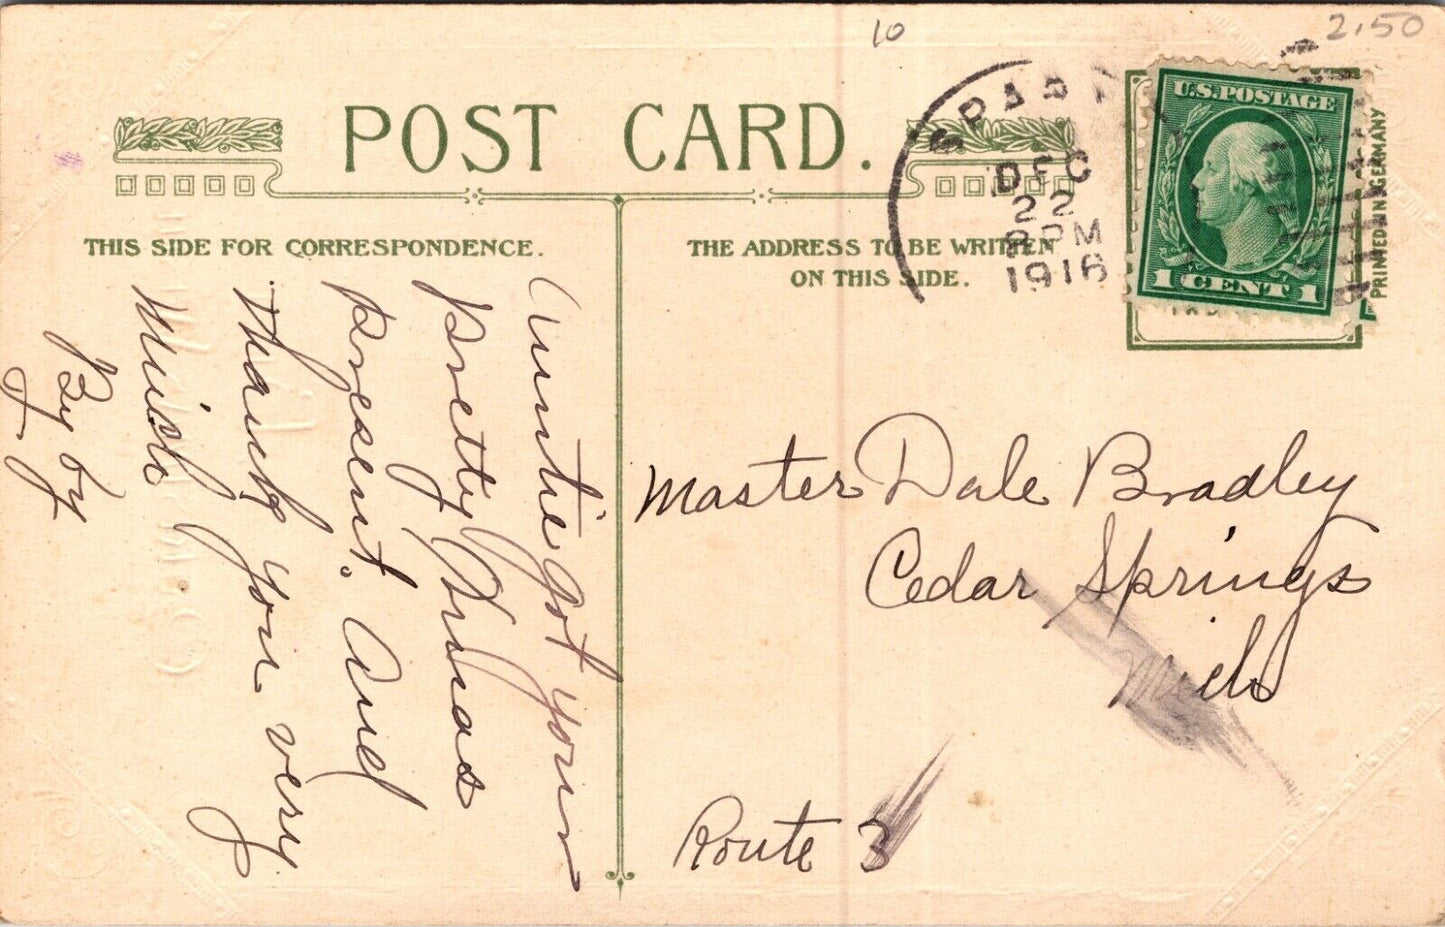 10
2.50
POST CARD.
SPARTA
DEC
22
PM
1916
U.S. POSTAGE
1 CENT 1
PRINTED IN GERMANY
THIS SIDE FOR CORRESPONDENCE.
THE ADDRESS TO BE WRITTEN
ON THIS SIDE.
Auntie got your
pretty Xmas
present. And
thank you very
Much
By by
Master Dale Bradley
Cedar Springs
Mich
Route 3